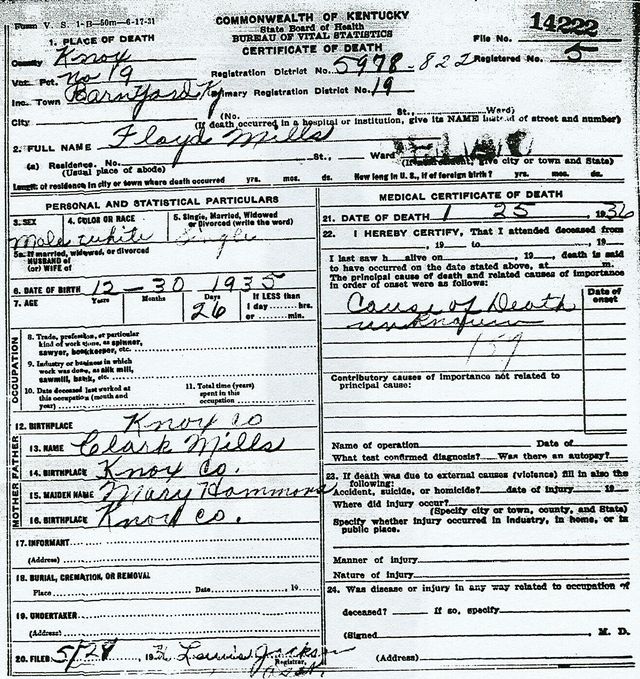 Form V. S. 1-B-50m-6-17-31
COMMONWEALTH OF KENTUCKY
State Board of Health
BUREAU OF VITAL STATISTICS
CERTIFICATE OF DEATH
File No. 14222
Registered No. 5
1. PLACE OF DEATH
County Knox
Vot. Pct. No 19
Inc. Town Barnyard Ky
Registration District No. 5978-822
Primary Registration District No. 19
City (No. St., Ward)
(If death occurred in a hospital or institution, give its NAME instead of street and number)
2. FULL NAME Floyd Mills
(a) Residence. No. St., Ward
(Usual place of abode) (If nonresident, give city or town and State)
Length of residence in city or town where death occurred yrs. mos. ds. How long in U. S., if of foreign birth? yrs. mos. ds.
PERSONAL AND STATISTICAL PARTICULARS
3. SEX
Male
4. COLOR OR RACE
white
5. Single, Married, Widowed
or Divorced (write the word)
Single
5a. If married, widowed, or divorced
HUSBAND of
(or) WIFE of
6. DATE OF BIRTH 12-30 1935
7. AGE Years Months Days
26
If LESS than
1 day hrs.
or min.
OCCUPATION
8. Trade, profession, or particular
kind of work done, as spinner,
sawyer, bookkeeper, etc.
9. Industry or business in which
work was done, as silk mill,
sawmill, bank, etc.
10. Date deceased last worked at
this occupation (month and
year)
11. Total time (years)
spent in this
occupation
12. BIRTHPLACE Knox Co
FATHER
13. NAME Clark Mills
14. BIRTHPLACE Knox Co.
MOTHER
15. MAIDEN NAME Mary Hammons
16. BIRTHPLACE Knox Co.
17. INFORMANT
(Address)
18. BURIAL, CREMATION, OR REMOVAL
Place Date 19
19. UNDERTAKER
(Address)
20. FILED 5/28, 193 Lewis Jackson
Registrar.
MEDICAL CERTIFICATE OF DEATH
21. DATE OF DEATH 1 25 1936
22. I HEREBY CERTIFY, That I attended deceased from
, 19 to , 19
I last saw h alive on , 19 death is said
to have occurred on the date stated above, at m.
The principal cause of death and related causes of importance
in order of onset were as follows:
Date of
onset
Cause of Death
unknown
159
Contributory causes of importance not related to
principal cause:
Name of operation Date of
What test confirmed diagnosis? Was there an autopsy?
23. If death was due to external causes (violence) fill in also the
following:
Accident, suicide, or homicide? date of injury 19
Where did injury occur?
(Specify city or town, county, and State)
Specify whether injury occurred in industry, in home, or in
public place.
Manner of injury
Nature of injury
24. Was disease or injury in any way related to occupation of
deceased? If so, specify
(Signed , M. D.
(Address)